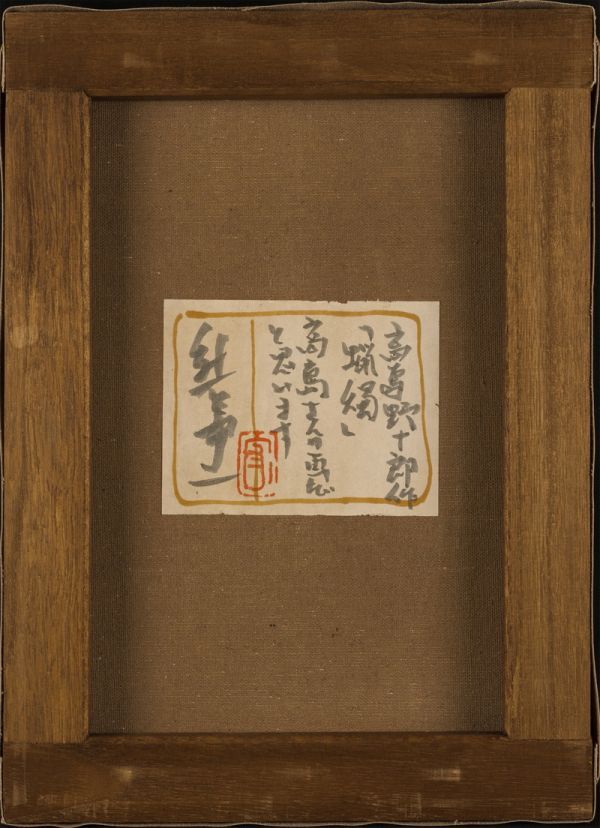 高島野十郎作
「蝋燭」
高島さんの画だ
と思います